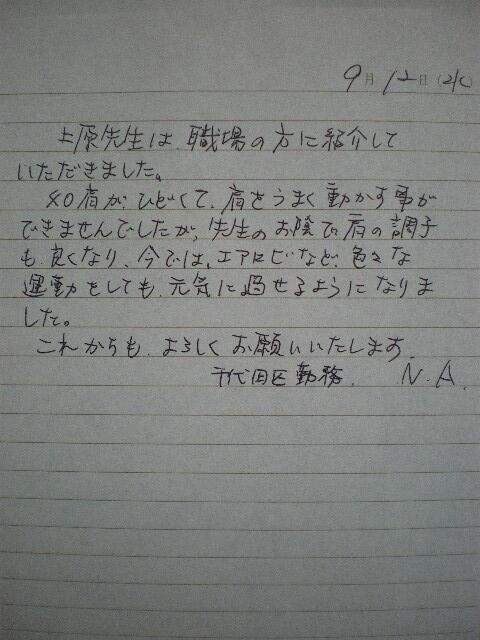 9月12日(水)
上原先生は、職場の方に紹介して
いただきました。
40肩がひどくて、肩をうまく動かす事が
できませんでしたが、先生のお陰で肩の調子
も、良くなり、今では、エアロビなど、色々な
運動をしても、元気に過せるようになりま
した。
これからも、よろしくお願いいたします。
千代田区勤務. N.A.